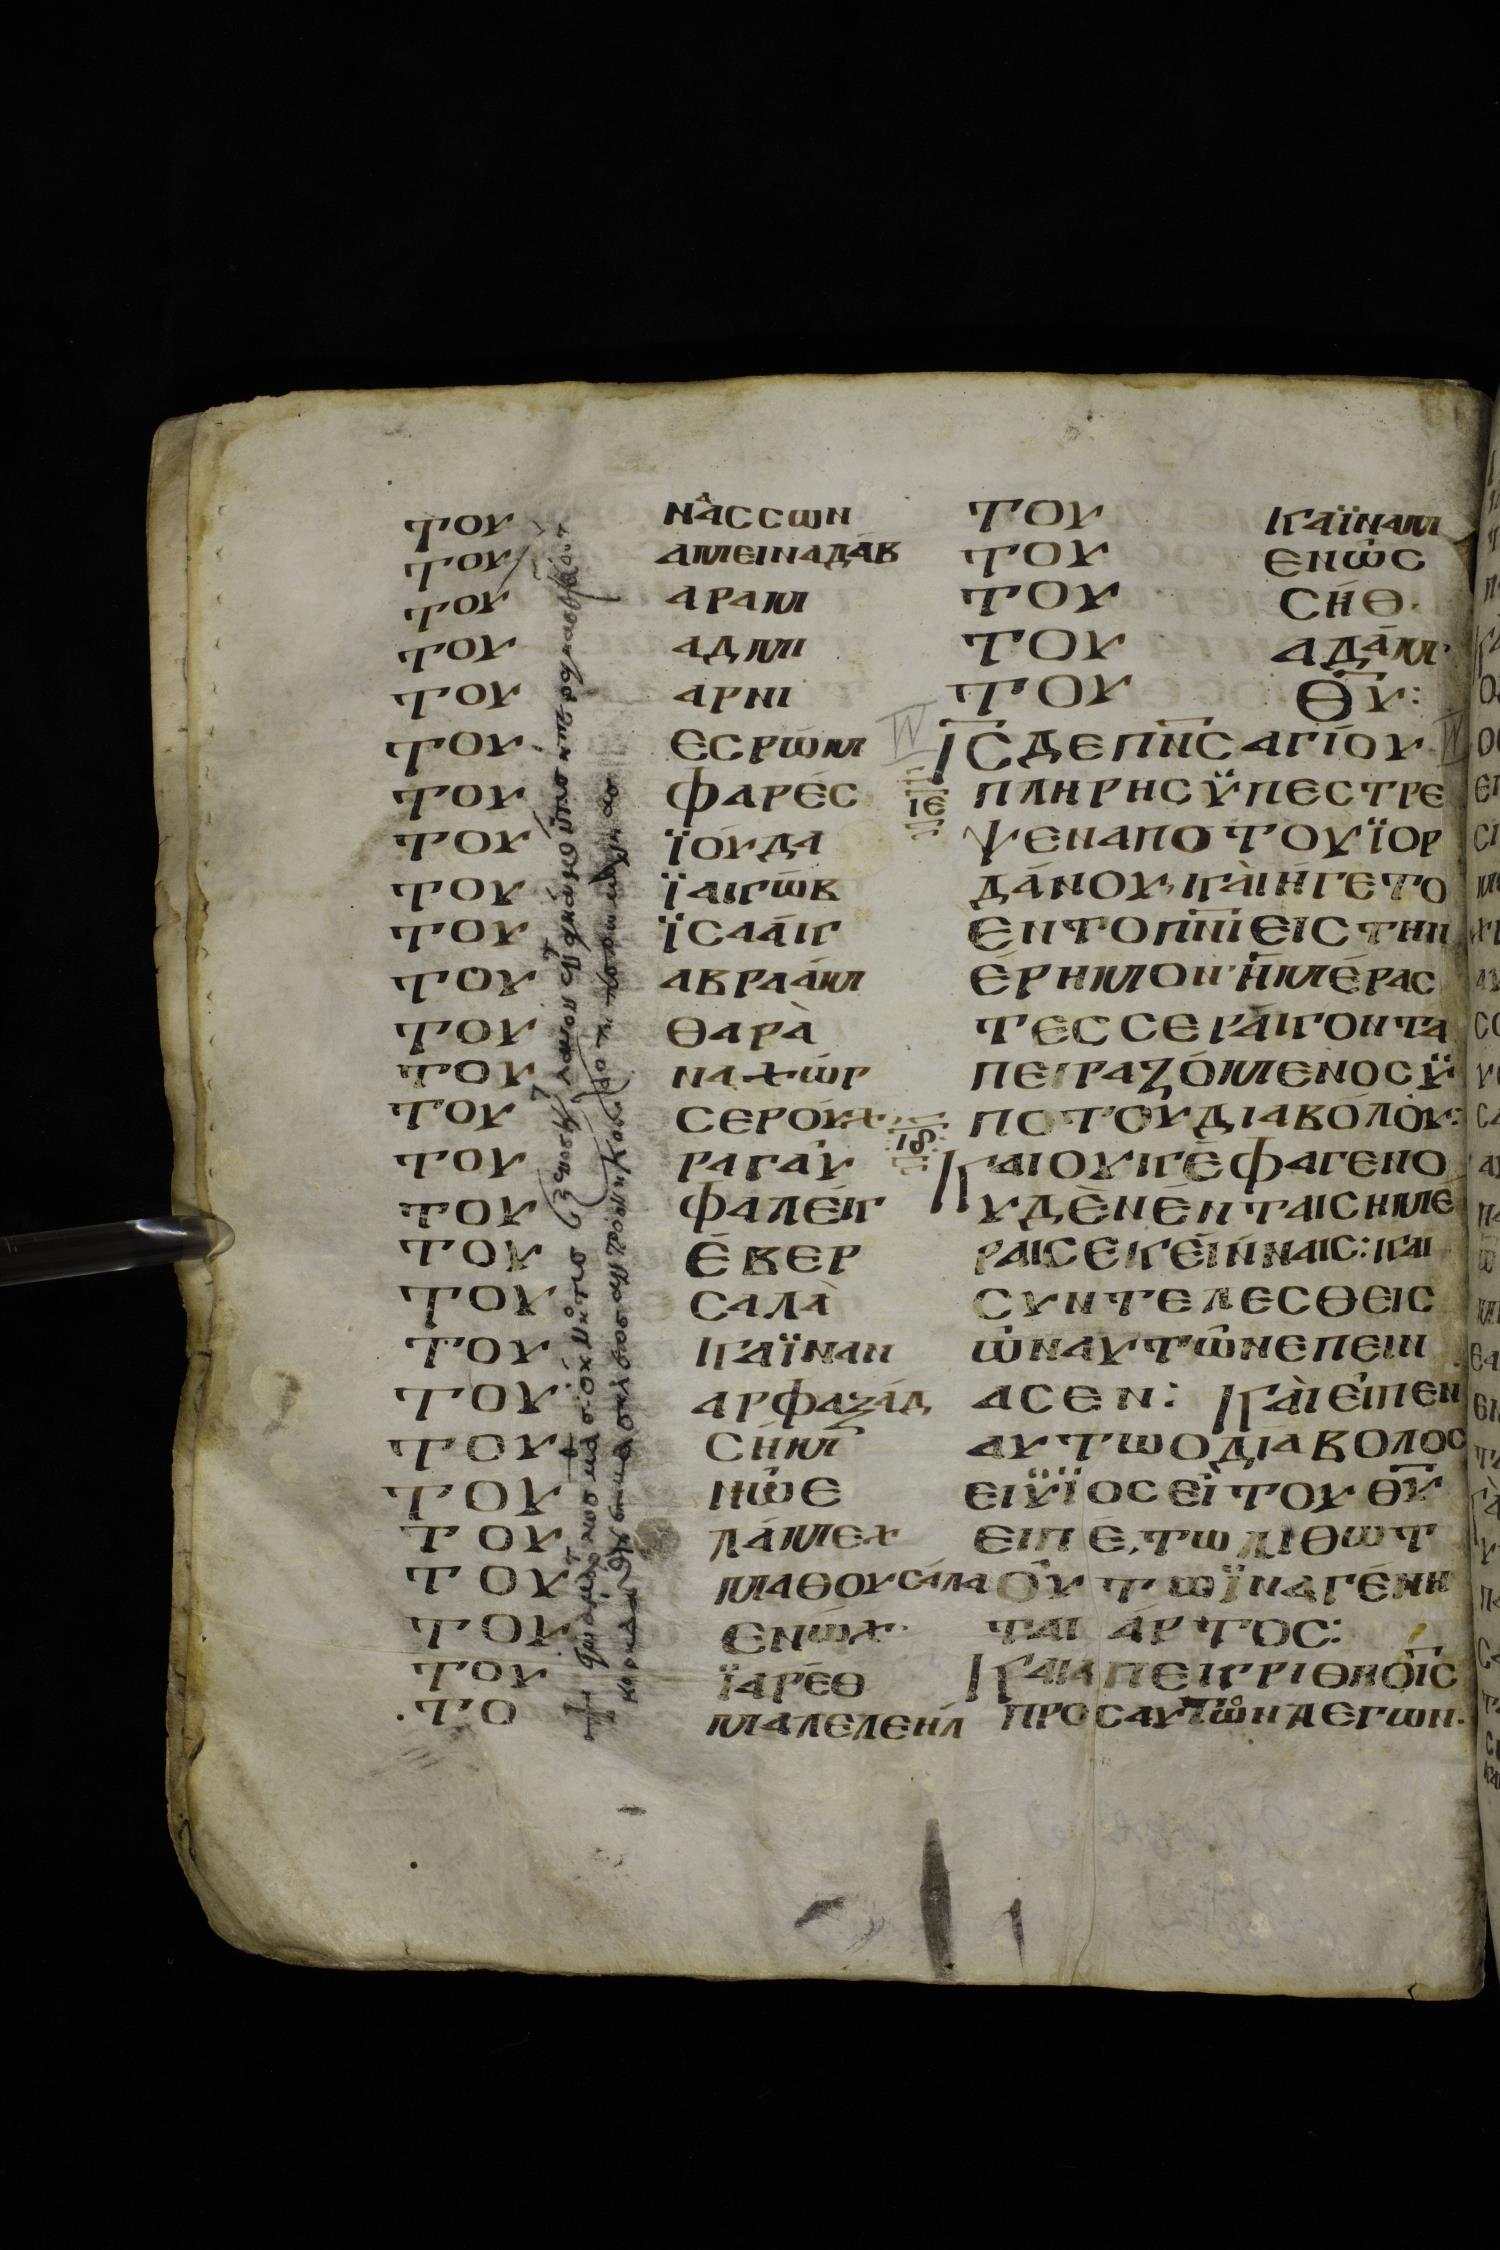 ΤΟΥ ΝΑΑССΩΝ
ΤΟΥ ΑΜΕΙΝΑΔΆΒ
ΤΟΥ ΑΡΑΜ
ΤΟΥ ΑΔΜΙ
ΤΟΥ ΑΡΝΙ
ΤΟΥ ΕСΡΏΜ
ΤΟΥ ΦΑΡΈС
ΤΟΥ ΪΟΎΔΑ
ΤΟΥ ΪΑΚΏΒ
ΤΟΥ ΪСΑΆΚ
ΤΟΥ ΑΒΡΑΆΜ
ΤΟΥ ΘΑΡᾺ
ΤΟΥ ΝΑΧΏΡ
ΤΟΥ СΕΡΟΎΧ
ΤΟΥ ΡΑΓΑΎ
ΤΟΥ ΦΑΛΈΚ
ΤΟΥ ΈΒΕΡ
ΤΟΥ СΑΛᾺ
ΤΟΥ ΚΑΪΝΑΝ
ΤΟΥ ΑΡΦΑΞΆΔ
ΤΟΥ СΉΜ
ΤΟΥ ΝΏΕ
ΤΟΥ ΛΆΜΕΧ
ΤΟΥ ΜΑΘΟΥСΆΛΑ
ΤΟΥ ΕΝΏΧ
ΤΟΥ ΪΑΡΈΘ
ΤΟ ΜΑΛΕΛΕΗΛ
ΤΟΥ ΚΑΪΝΑΜ
ΤΟΥ ΕΝΏС
ΤΟΥ СΉΘ·
ΤΟΥ ΑΔΆΜ·
ΤΟΥ Θ̅Υ̅:
Ι̅С̅ ΔΕ Π̅Ν̅С̅ ΑΓΊΟΥ
ΙΕ ΠΛΗΡΗС ΫΠΕСΤΡΕ
ΨΕΝ ΑΠΟ ΤΟΥ ΪΟΡ
ΔΆΝΟΥ, ΚΑῚ ΉΓΕΤΟ
ΕΝ ΤΟ Π̅Ν̅Ι̅ ΕΙС ΤΗΝ
ΈΡΗΜΟΝ· ΗΜΈΡΑС
ΤΕССΕΡΆΚΟΝΤΑ
ΠΕΙΡΑΖΌΜΕΝΟС Ϋ
ΠΟ ΤΟΥ ΔΙΑΒΌΛΟΥ:
Ιϛ ΚΑΙ ΟΥΚ ΈΦΑΓΕΝ Ο
ΥΔῈΝ ΈΝ ΤΑΙС ΗΜΕ
ΡΑΙС ΕΚΕΊΝΑΙС: ΚΑΙ
СΥΝΤΕΛΕСΘΕΙС
ΏΝ ΑΥΤΏΝ ΕΠΕΙΝ
ΑСΕΝ: ΚΑῚ ΕΙΠΕΝ
ΑΥΤΩ Ο ΔΙΑΒΟΛΟС
ΕΙ ΫΪΟС ΕΙ ΤΟΥ Θ̅Υ̅
ΕΙΠΈ, ΤΩ ΛΙΘΩ Τ
ΟΎΤΩ ΪΝΑ ΓΈΝΗ
ΤΑΙ ΆΡΤΟС:
ΚΑΙ ΑΠΕΚΡΙΘΗ Ο Ι̅С̅
ΠΡΟС ΑΥΤΏΝ ΛΕΓΩΝ·